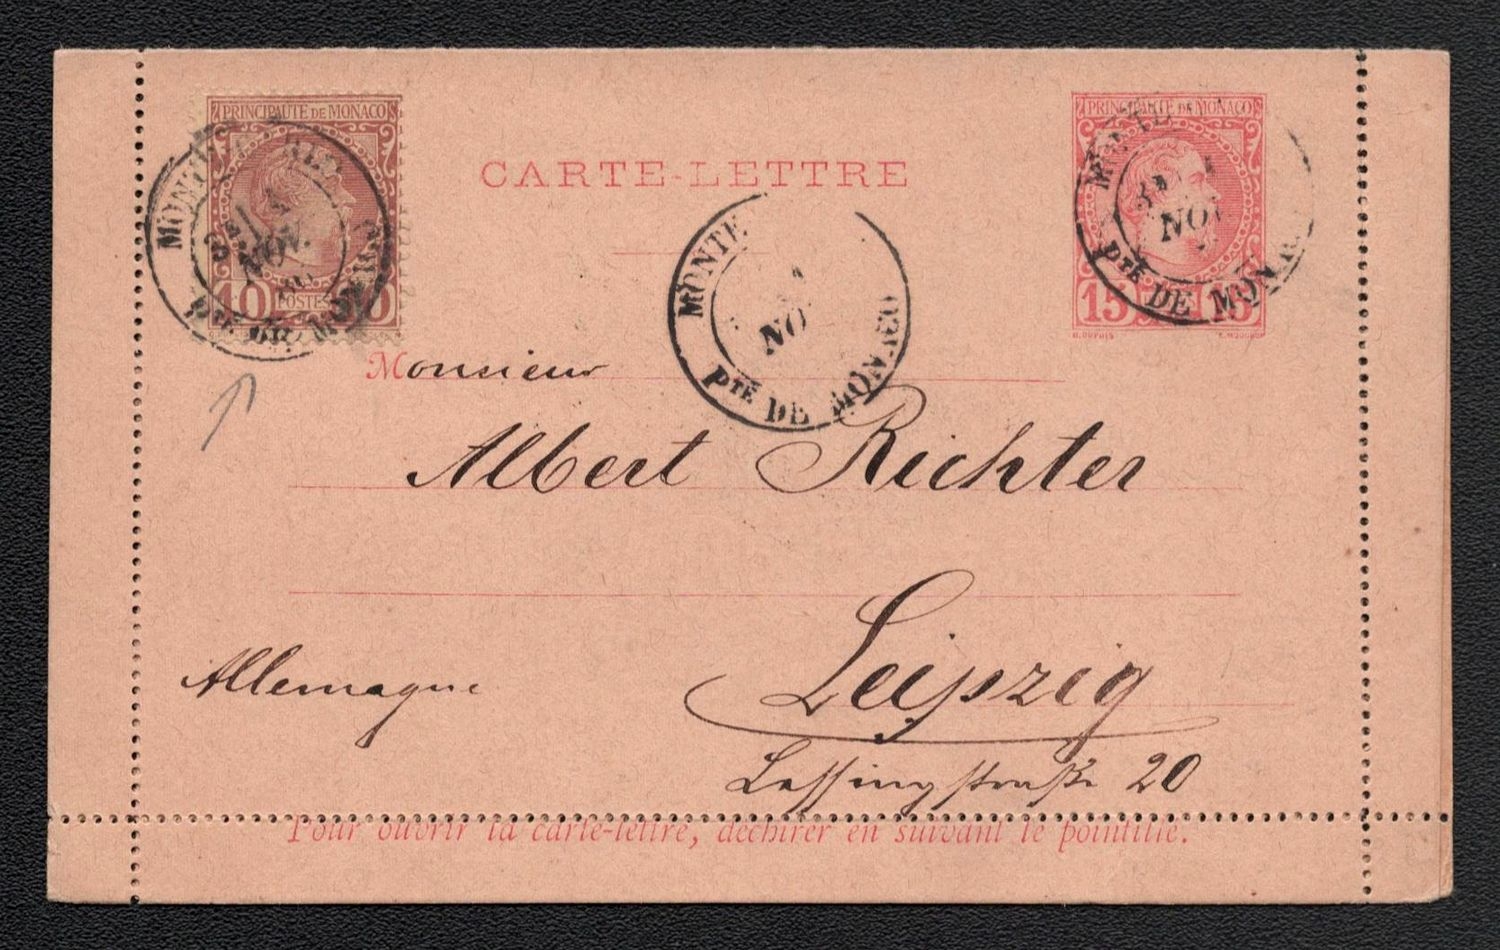 PRINCIPAUTÉ DE MONACO
10 POSTES
PRINCIPAUTÉ DE MONACO
15 15
CARTE-LETTRE
MONTE
NOV.
Pté DE MON
MONTE
NO
Pté DE MONACO
MONTE
NOV
Pté DE MONA
Monsieur
Albert Richter
Leipzig
Allemagne
Lessingstraße 20
Pour ouvrir la carte-lettre, déchirer en suivant le pointillé.